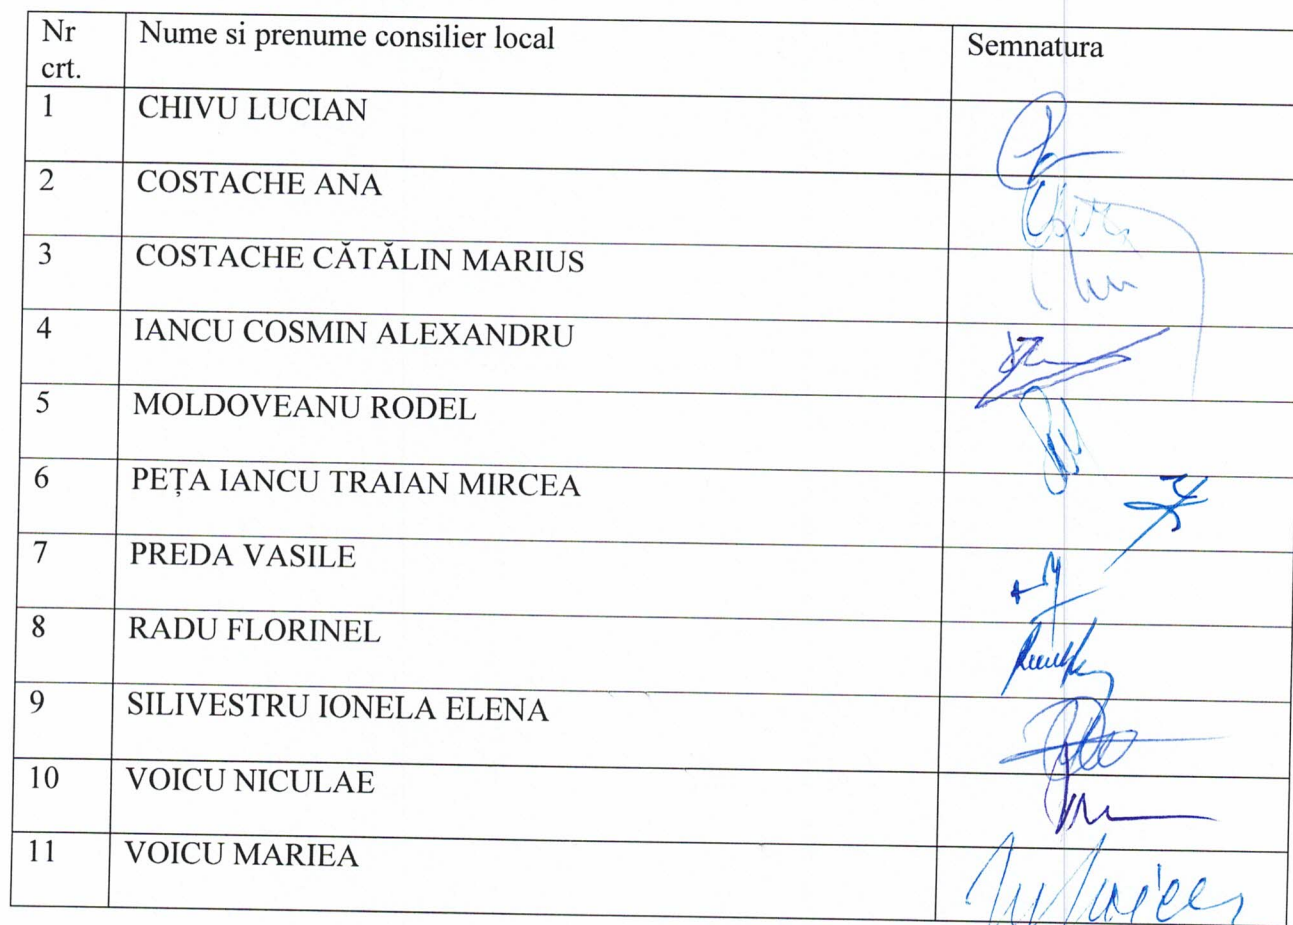 Nr crt. Nume si prenume consilier local Semnatura
1 CHIVU LUCIAN
2 COSTACHE ANA
3 COSTACHE CĂTĂLIN MARIUS
4 IANCU COSMIN ALEXANDRU
5 MOLDOVEANU RODEL
6 PEȚA IANCU TRAIAN MIRCEA
7 PREDA VASILE
8 RADU FLORINEL
9 SILIVESTRU IONELA ELENA
10 VOICU NICULAE
11 VOICU MARIEA